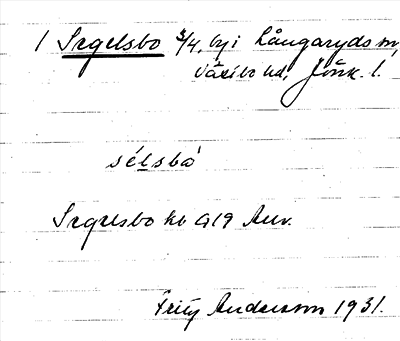 1 Segelsbo 3/4, by i Långaryds sn,
Västbo hd, Jönk. l.
sélsbó
Segelsbo kb 1919 Anv.
Fritz Anderson 1931.